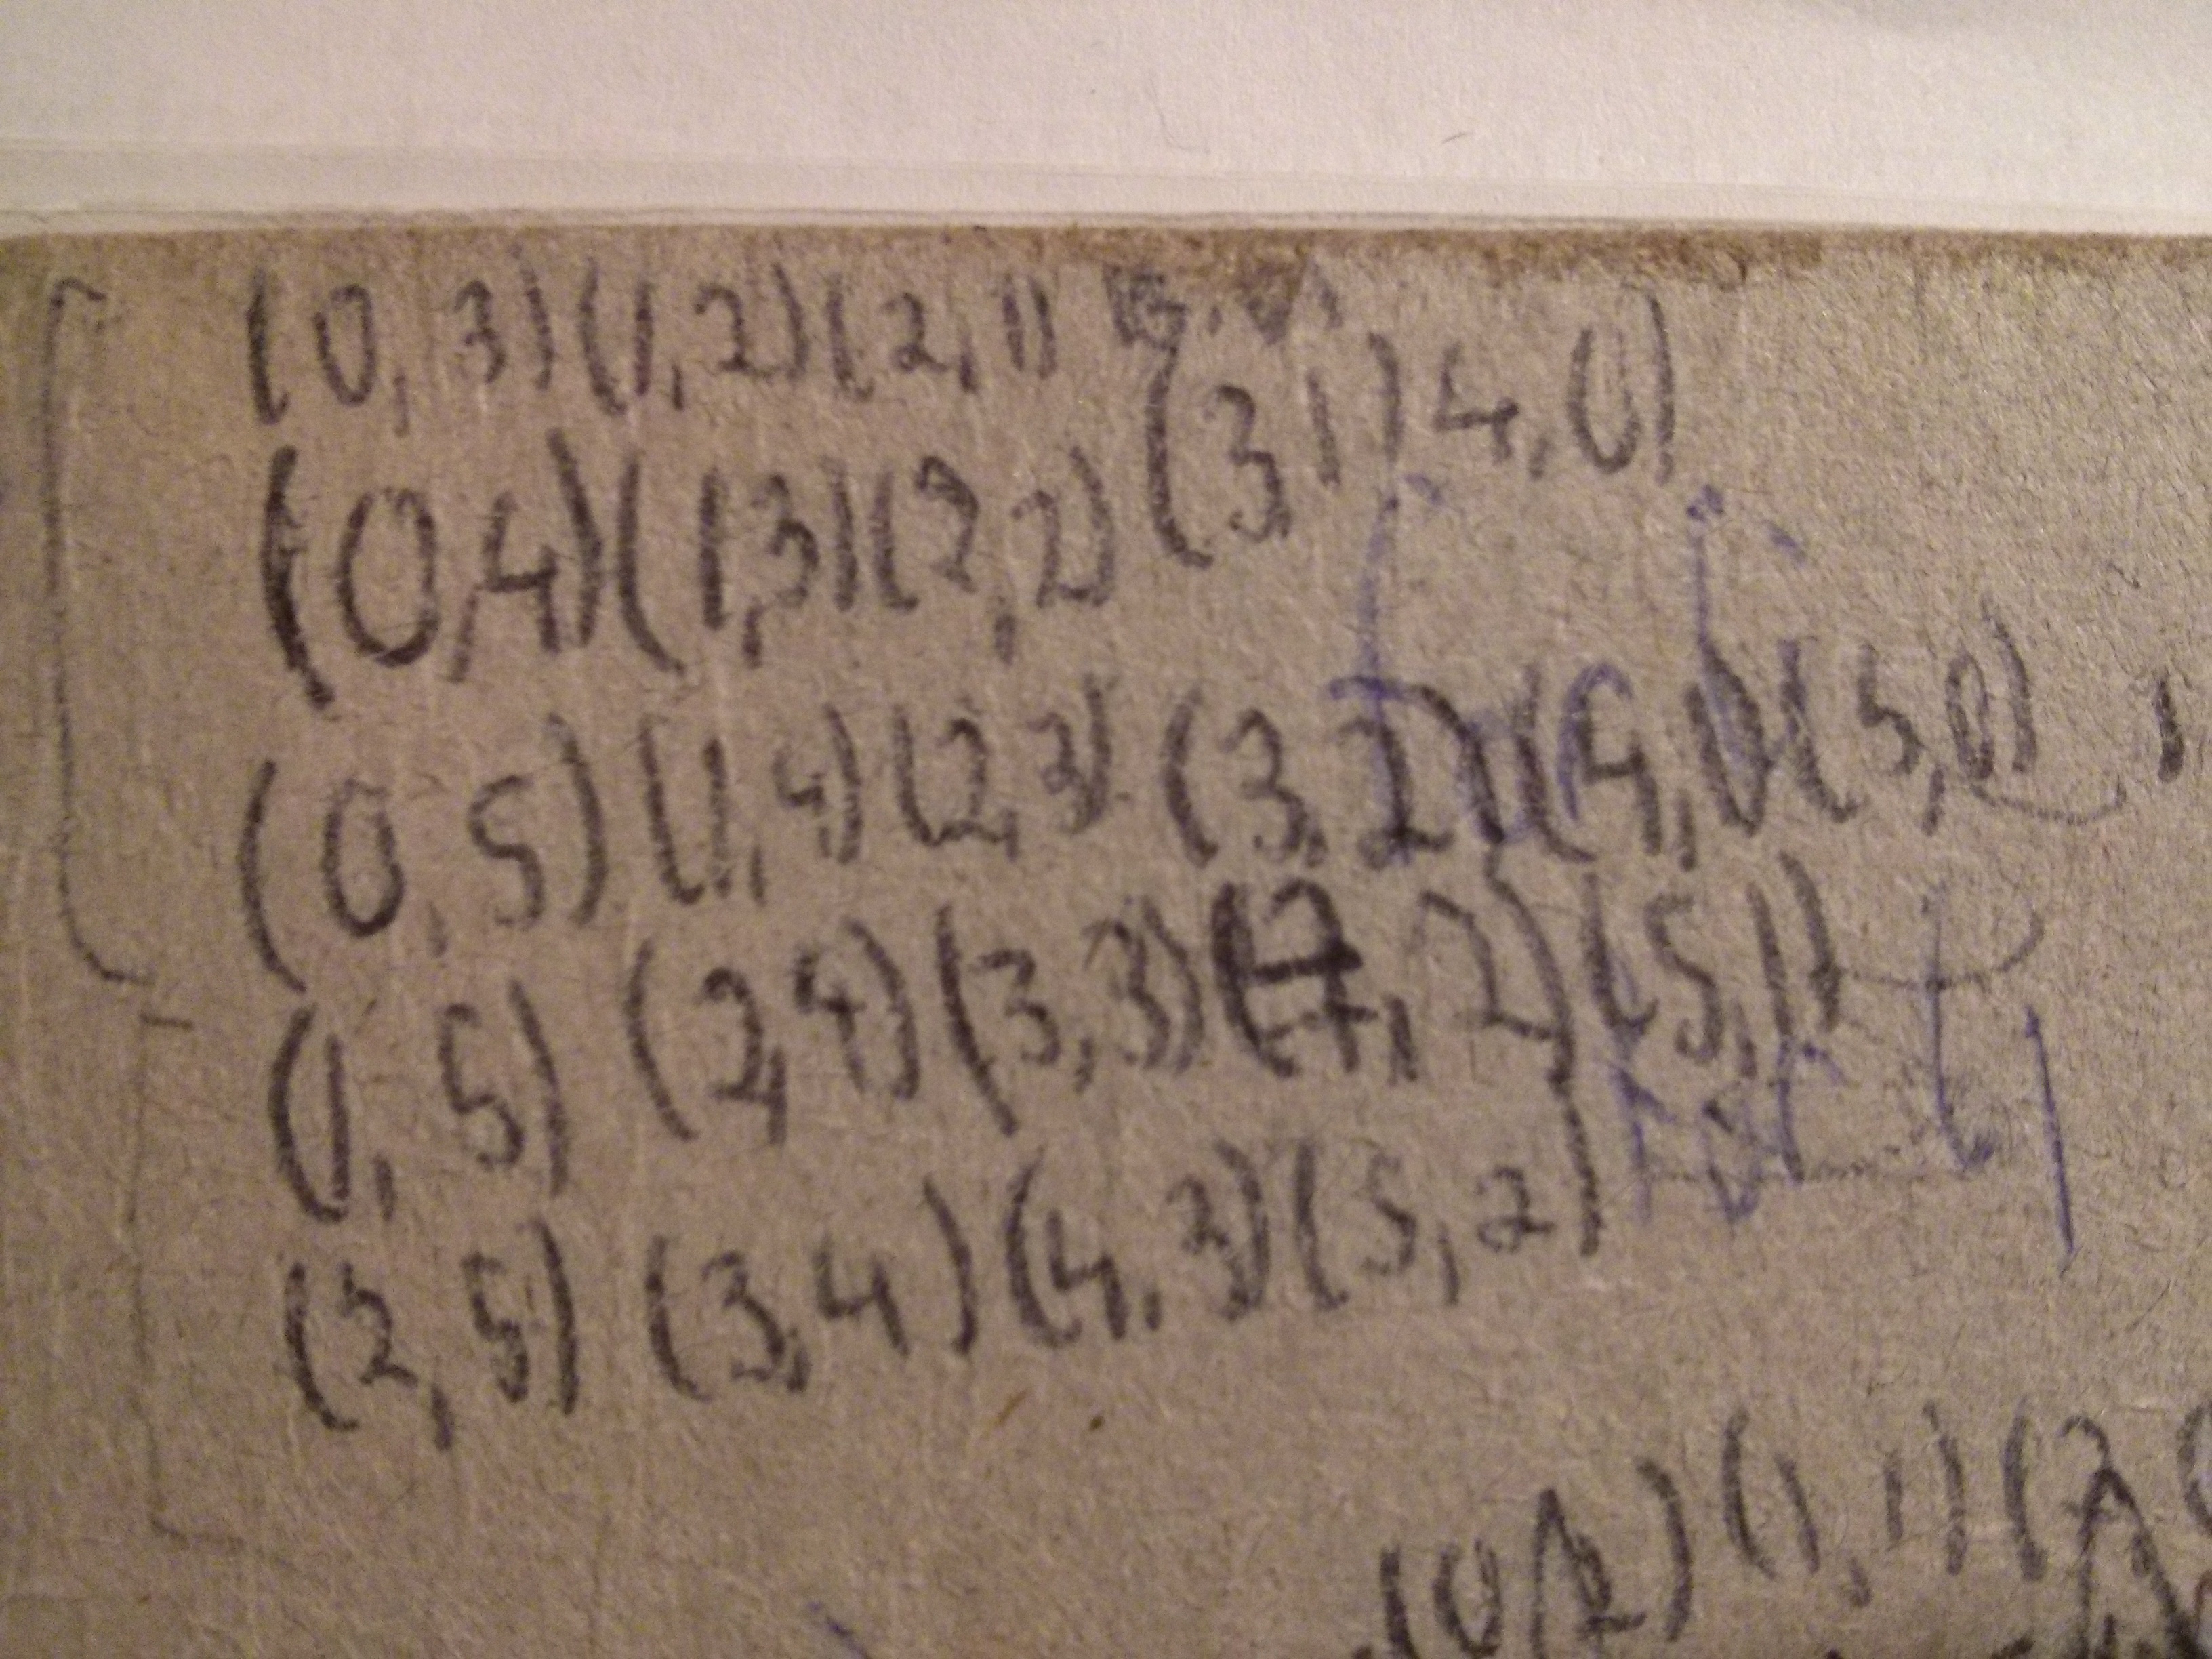 (0, 3) (1, 2) (2, 1)
(0,4) (1,3) (2,2) (3,1) 4,0)
(0,5) (1,4) (2,3) (3,2) (4,1) (5,0)
(1, 5) (2,4) (3,3) (4,2) (5,1)
(2,5) (3,4) (4,3) (5,2)
(1,1)